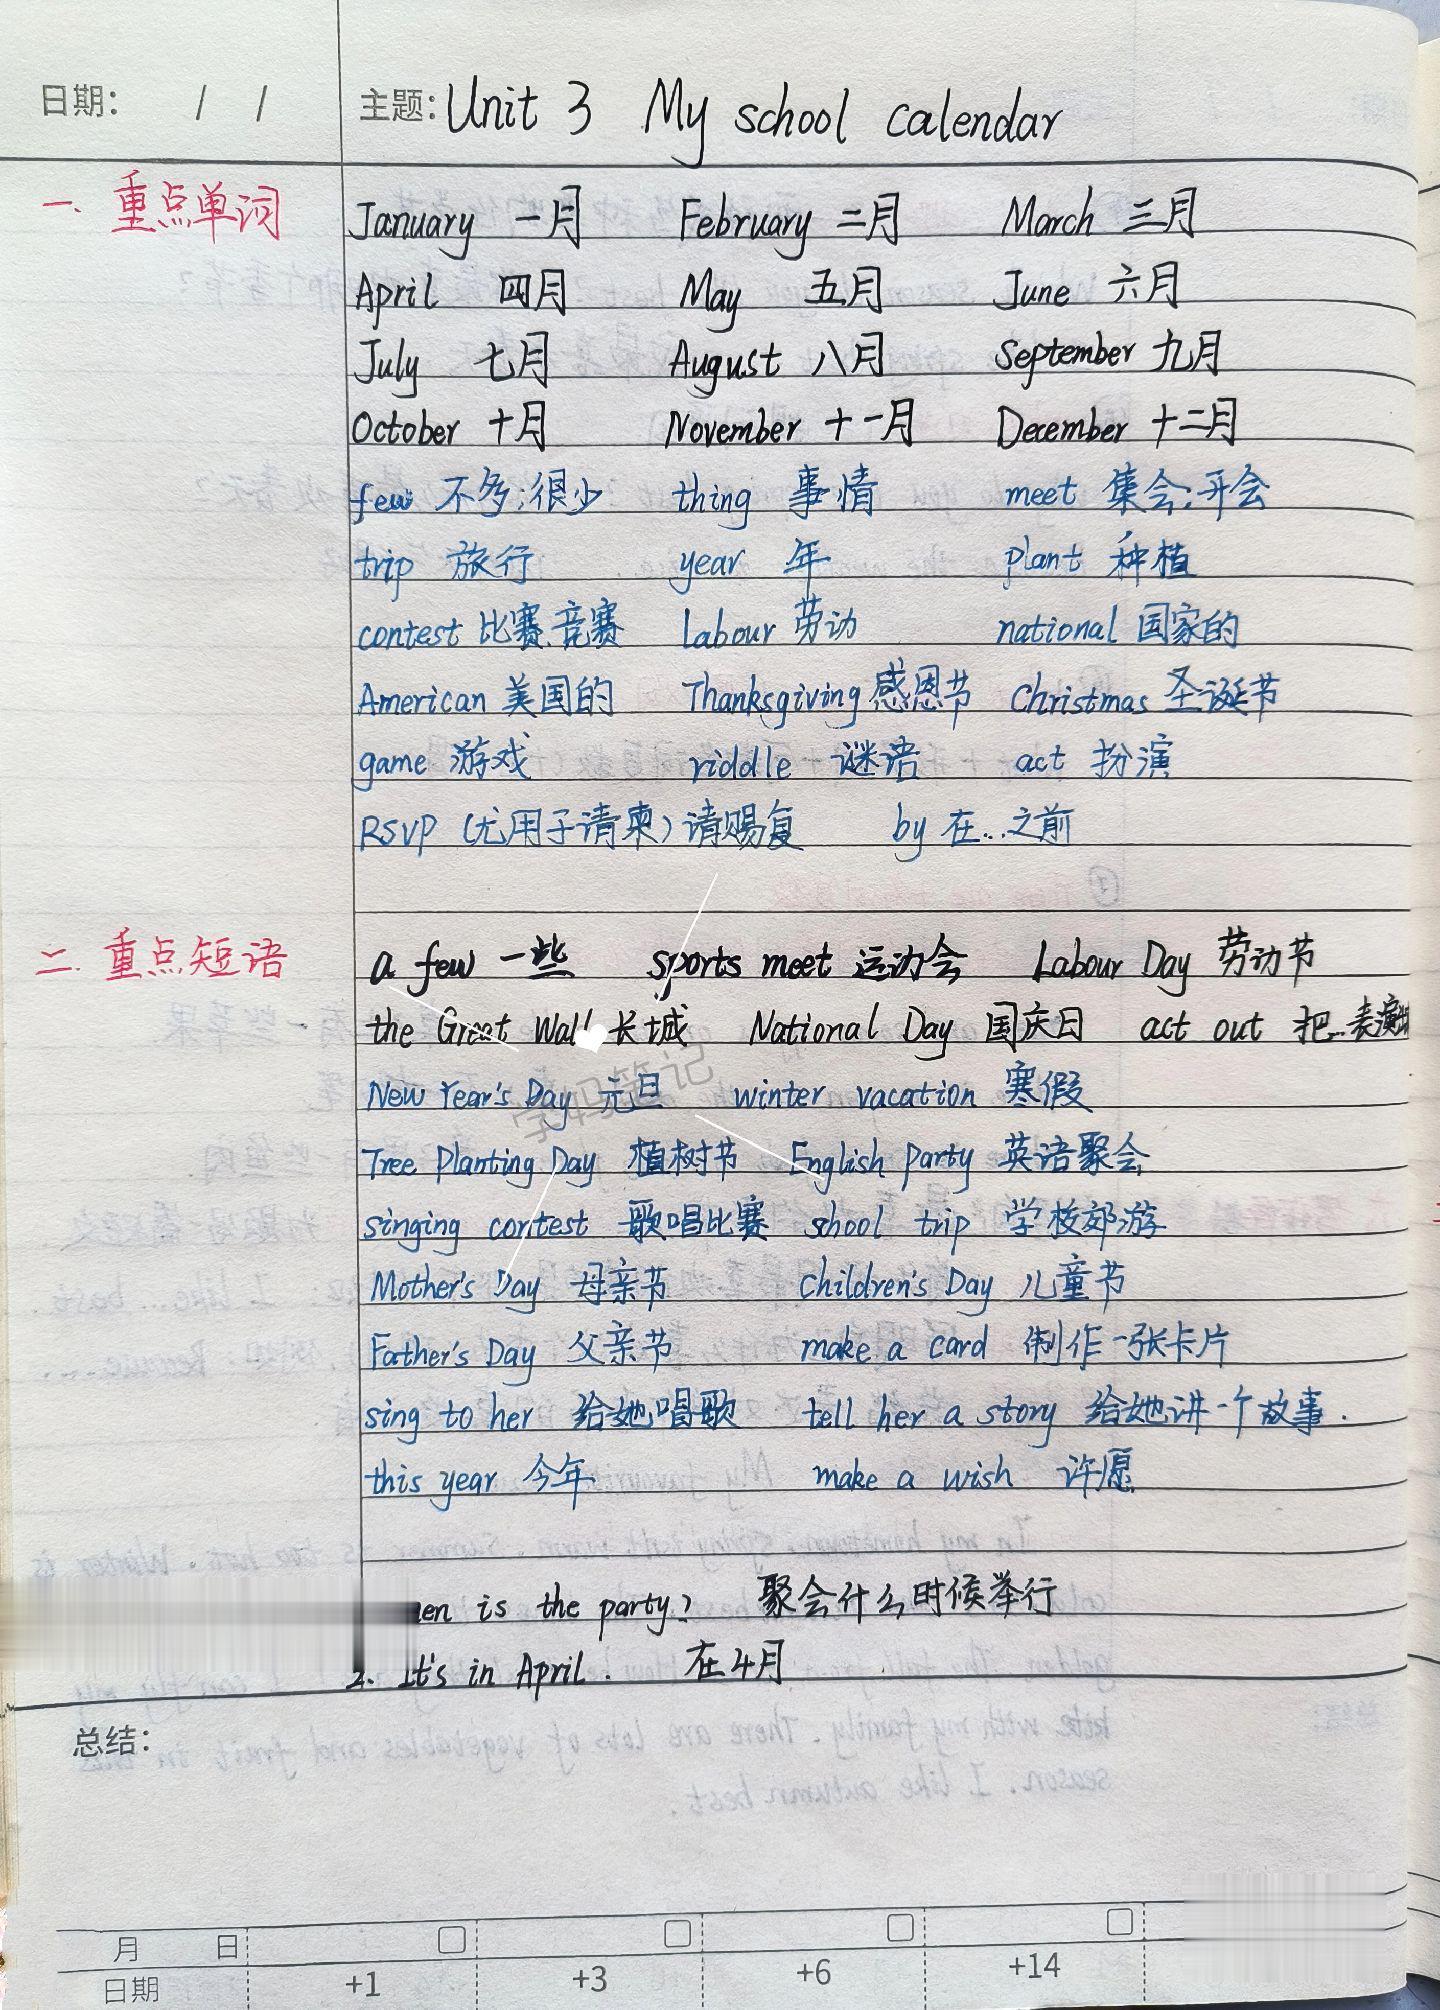 日期: / / 主题: Unit 3 My school calendar
一. 重点单词
January 一月 February 二月 March 三月
April 四月 May 五月 June 六月
July 七月 August 八月 September 九月
October 十月 November 十一月 December 十二月
few 不多;很少 thing 事情 meet 集会;开会
trip 旅行 year 年 plant 种植
contest 比赛.竞赛 Labour 劳动 national 国家的
American 美国的 Thanksgiving 感恩节 Christmas 圣诞节
game 游戏 riddle 谜语 act 扮演
RSVP (尤用于请柬) 请赐复 by 在...之前
二. 重点短语
a few 一些 sports meet 运动会 Labour Day 劳动节
the Great Wall 长城 National Day 国庆日 act out 把...表演出
New Year's Day 元旦 winter vacation 寒假
学妈笔记
Tree Planting Day 植树节 English party 英语聚会
singing contest 歌唱比赛 school trip 学校郊游
Mother's Day 母亲节 Children's Day 儿童节
Father's Day 父亲节 make a card 制作一张卡片
sing to her 给她唱歌 tell her a story 给她讲一个故事.
this year 今年 make a wish 许愿
is the party? 聚会什么时候举行
2. It's in April. 在4月
总结:
月 日
日期 +1 +3 +6 +14